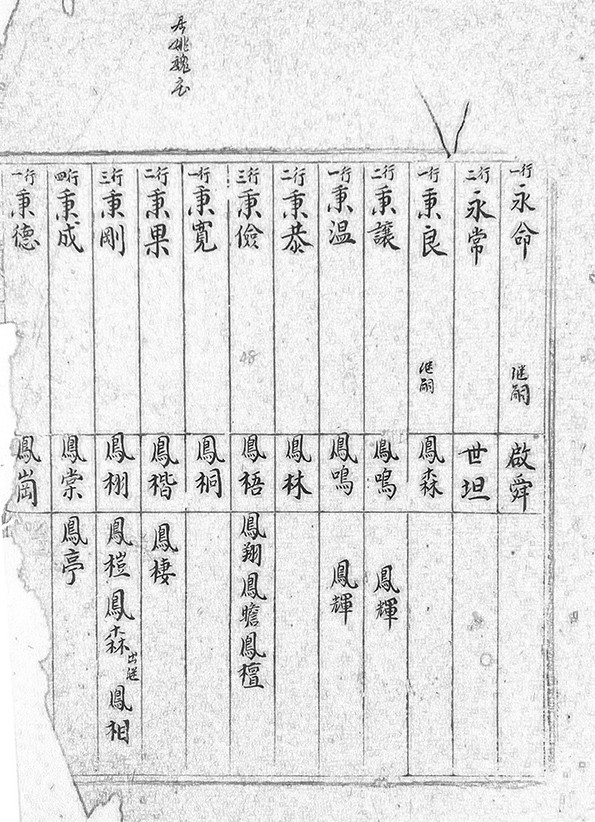 居姚魏庄
行一 永命 继嗣 啟舜
行二 永常 世坦
行一 秉良 继嗣 鳳森
行二 秉讓 鳳鳴 鳳輝
行一 秉温 鳳鳴 鳳輝
行二 秉恭 鳳林
行三 秉儉 鳳梧 鳳翔 鳳瞻 鳳檀
行一 秉寬 鳳桐
行二 秉果 鳳楷 鳳棲
行三 秉剛 鳳栩 鳳楷 鳳森 出继 鳳相
行四 秉成 鳳棠 鳳亭
行一 秉德 鳳崗
48